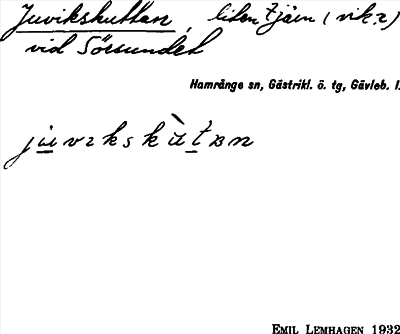 Juvikskuttan, liten tjärn (vik?)
vid Sörsundet
Hamrånge sn, Gästrikl. ö. tg, Gävleb. l.
juvıkskùtan
EMIL LEMHAGEN 1932